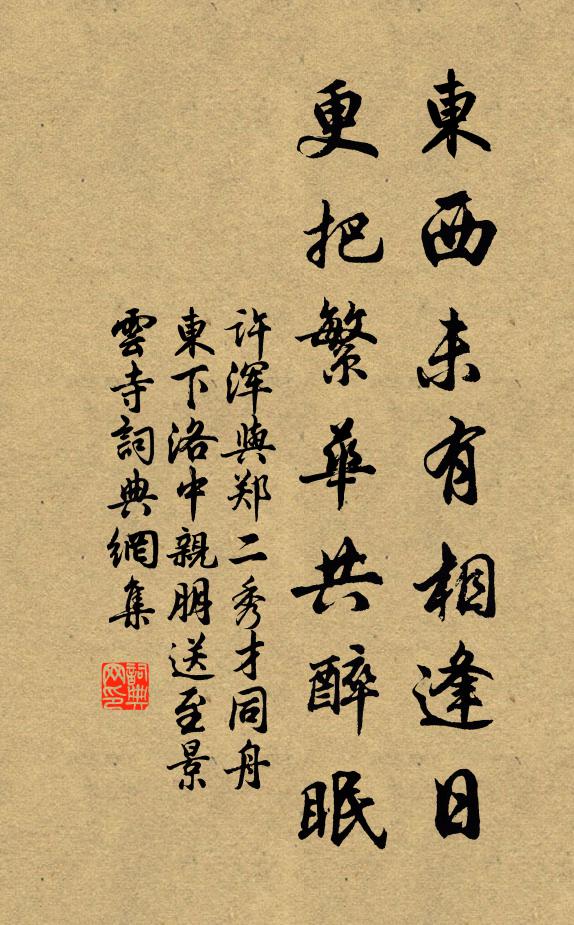 東西未有相逢日
更把繁華共醉眠
许浑與郑二秀才同舟
東下洛中親朋送至景
雲寺詞典網集
詞典
网印